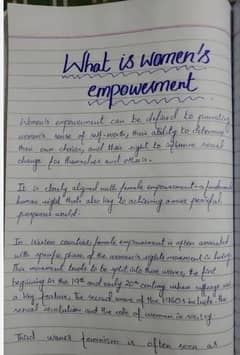 What is women's
empowerment
Women's empowerment can be defined to promoting
women's sense of self-worth, their ability to determine
their own choices, and their right to influence social
change for themselves and others.
It is closely aligned with female empowerment a fundamental
human right that's also key to achieving a more peaceful
prosperous world.
In Western countries, female empowerment is often associated
with specific phase of the women's rights movement in history.
This movement tends to be split into three waves, the first
beginning in the 19th and early 20th century where suffrage was
a key feature. The second wave of the 1960s include the
sexual revolution and the role of women in society.
Third wave feminism is often seen as